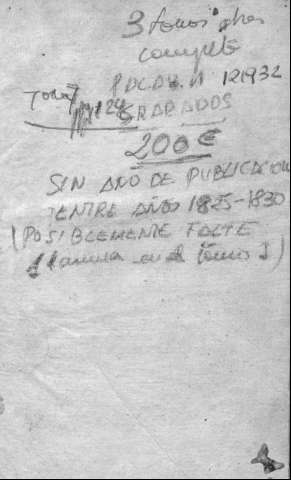 3 tomos
complet
PALAU N 121932
GRABADOS
200 €
SIN AÑO DE PUBLICACION
ENTRE AÑOS 1825-1830
(POSIBLEMENTE FALTE
1 lamina en el tomo I)